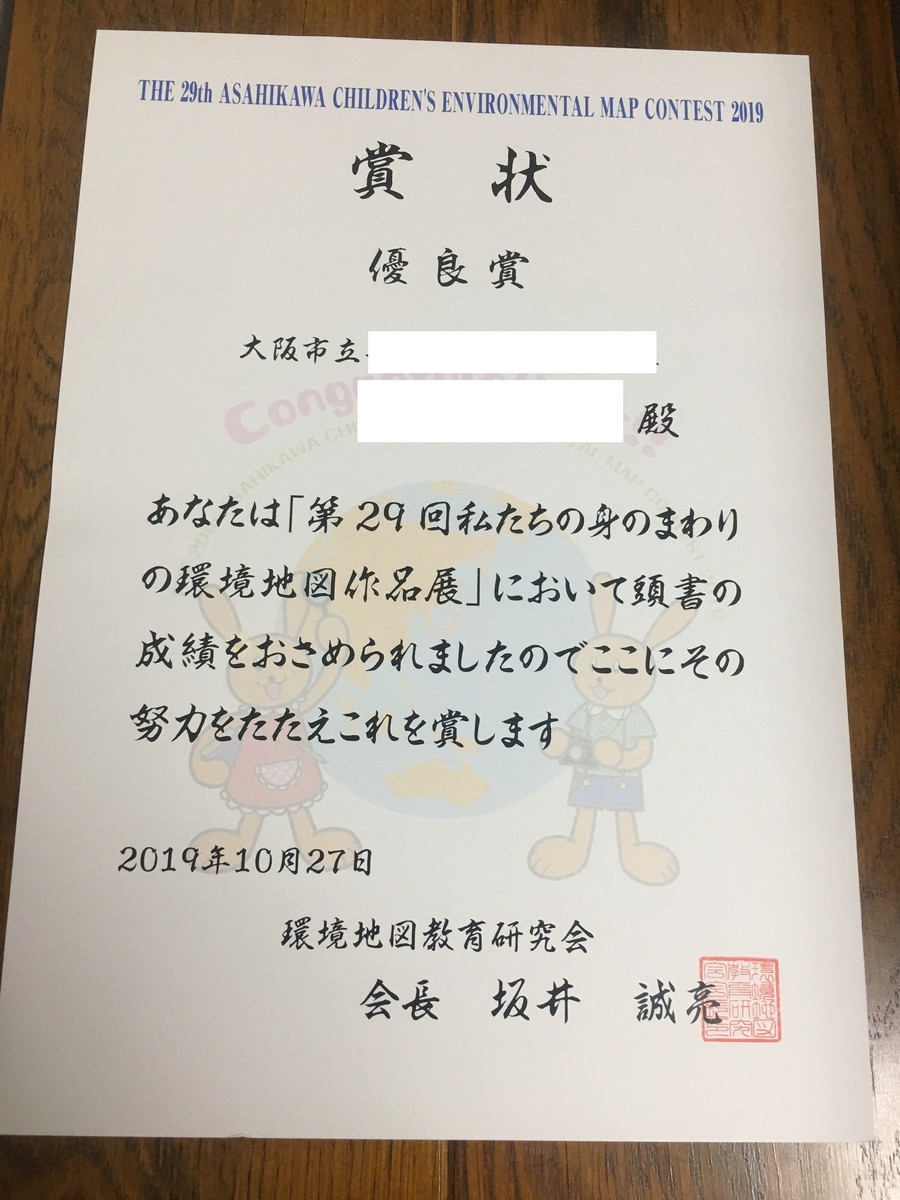 THE 29th ASAHIKAWA CHILDREN'S ENVIRONMENTAL MAP CONTEST 2019
賞 状
優良賞
大阪市立
殿
あなたは「第29回私たちの身のまわり
の環境地図作品展」において頭書の
成績をおさめられましたのでここにその
努力をたたえこれを賞します
2019年10月27日
環境地図教育研究会
会長 坂井 誠亮